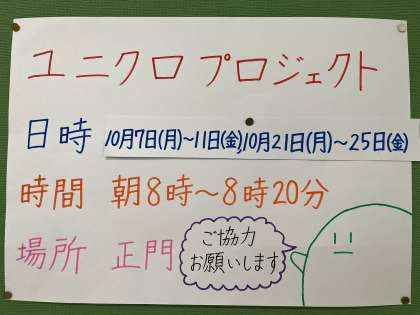 ユニクロプロジェクト
日時 10月7日(月)~11日(金),10月21日(月)～25日(金)
時間 朝8時～8時20分
場所 正門
ご協力
お願いします